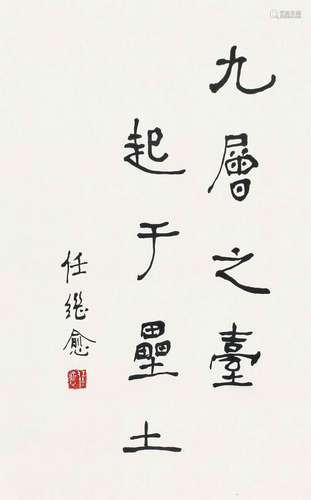 九層之臺
起于壘土
任继愈